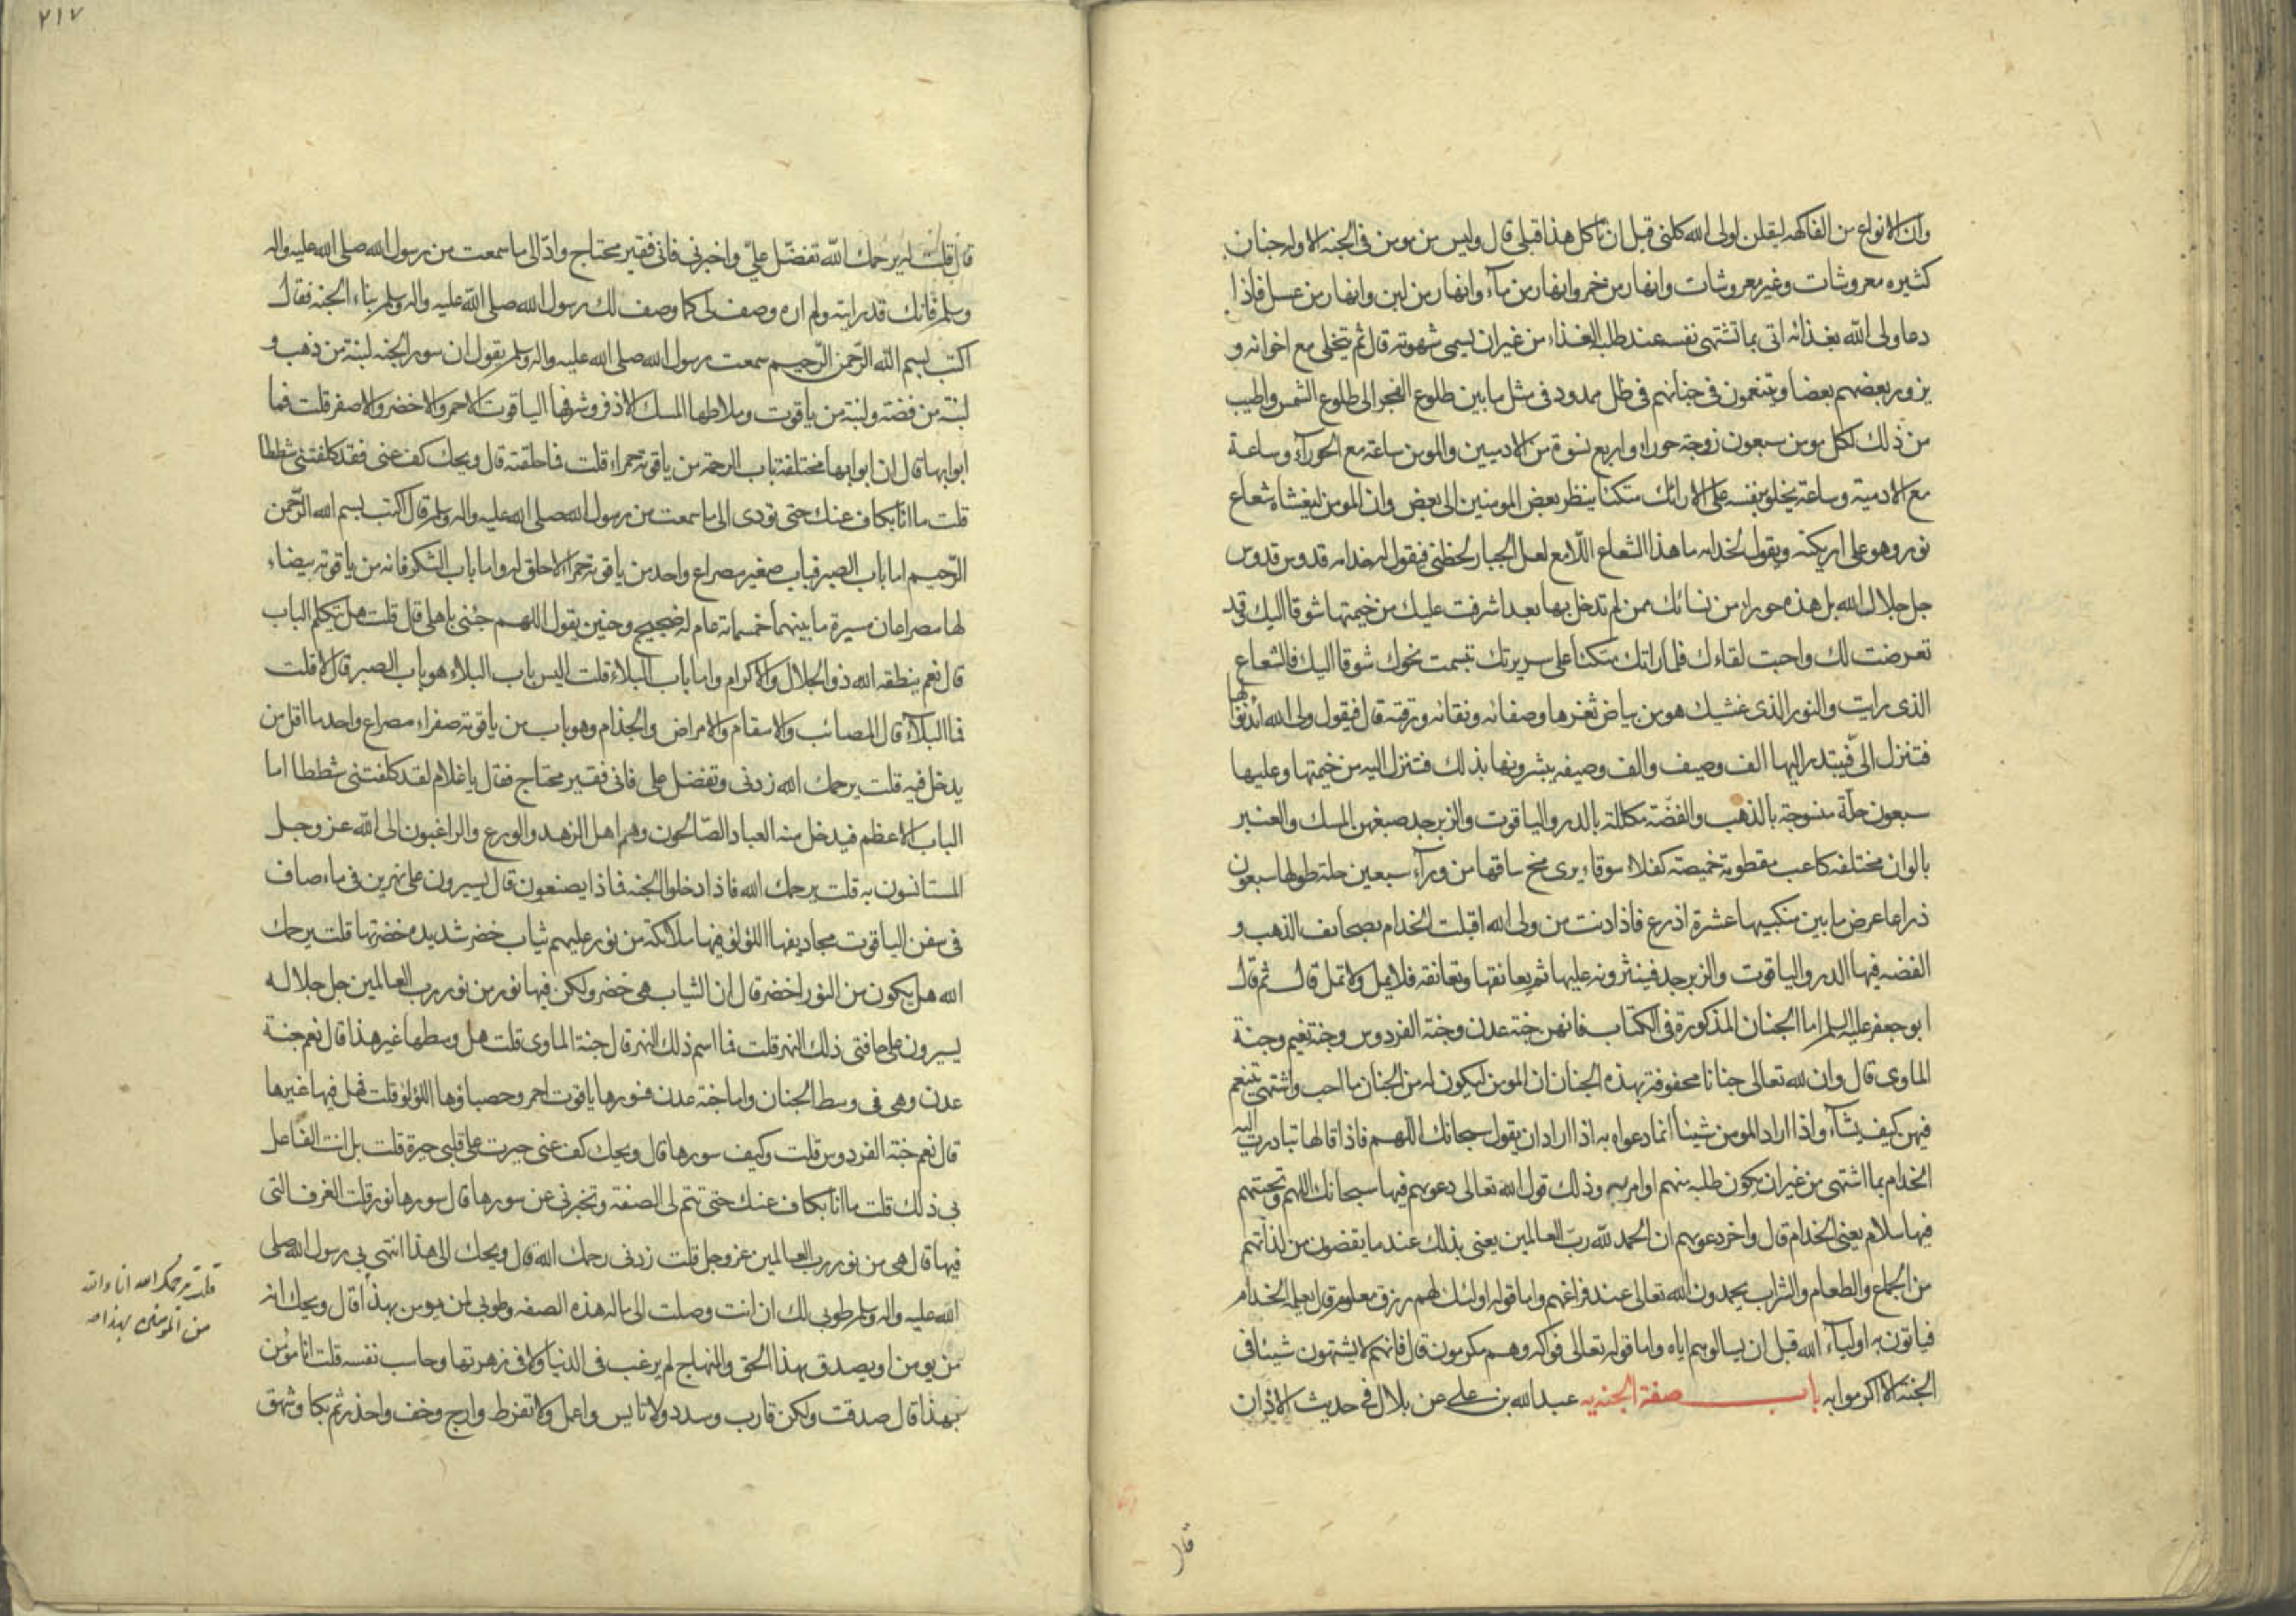 وان الانواع من الفاكهه ليقلن لولى الله كلنى قبل ان تاكل هذا قبلى قال وليس من مومن فى الجنه الا وله جنان
كثيره معروشات وغير معروشات وانهار من خمر وانهار من مآء وانهار من لبن وانهار من عسل فاذا
دعا ولى الله بغذائه اتى بما تشتهى نفسه عند طلبه الغذاء من غير ان يسمى شهوته قال ثم يتخلى مع اخوانه و
يزور بعضهم بعضا ويتنعمون فى جناتهم فى ظل ممدود فى مثل ما بين طلوع الفجر الى طلوع الشمس واطيب
من ذلك لكل مومن سبعون زوجة حوراء واربع نسوة من الادميين والمومن ساعة مع الحورآء وساعة
مع الادمية وساعة يخلو بنفسه على الارائك متكئا ينظر بعض المومنين الى بعض وان المومن ليغشاه شعاع
نور وهو على اريكته ويقول لخدامه ما هذا الشعاع اللامع لعل الجبار لحظنى فيقول له خدامه قدوس قدوس
جل جلال الله بل هذه حوراء من نسائك ممن لم تدخل بها بعد اشرفت عليك من خيمتها شوقا اليك وقد
تعرضت لك واحبت لقاءك فلما راتك متكئا على سريرك تبسمت نحوك شوقا اليك فالشعاع
الذى رايت والنور الذى غشيك هو من بياض ثغرها وصفائه ونقائه ورقته قال فيقول ولى الله ائذنوا لها
فتنزل الىّ فيبتدر اليها الف وصيف والف وصيفه يبشرونها بذلك فتنزل اليه من خيمتها وعليها
سبعون حلّة منسوجة بالذهب والفضّة مكللة بالدر والياقوت والزبرجد صبغهن المسك والعنبر
بالوان مختلفه كاعب مقطومة خميصة كفلاء سوقاء يرى مخ ساقها من ورآء سبعين حلة طولها سبعون
ذراعا عرض ما بين منكبيها عشرة اذرع فاذا دنت من ولى الله اقبلت الخدام بصحائف الذهب و
الفضه فيها الدر والياقوت والزبرجد فينثرونه عليها ثم يعانقها وتعانقه فلا يمل ولا تمل قال ثم قال
ابو جعفر عليه السلم اما الجنان المذكورة فى الكتاب فانهن جنة عدن وجنة الفردوس وجنة نعيم وجنة
الماوى قال وان لله تعالى جنانا محفوفة بهذه الجنان ان المومن ليكون له من الجنان ما احب واشتهى يتنعم
فيهن كيف يشآء واذا اراد المومن شيئا انما دعواه به اذا اراد ان يقول سبحانك اللهم فاذا قالها تبادرت اليه
الخدام بما اشتهى من غير ان يكون طلبه منهم او امر به وذلك قول الله تعالى دعويهم فيها سبحانك اللهم وتحيتهم
فيها سلام يعنى الخدام قال واخر دعويهم ان الحمد لله ربّ العالمين يعنى بذلك عند ما يقضون من لذاتهم
من الجماع والطعام والشراب يحمدون الله تعالى عند فراغهم واما قوله اولئك لهم رزق معلوم قال يعلمه الخدام
فياتون به اولياء الله قبل ان يسالوهم اياه واما قوله تعالى فواكه وهم مكرمون قال فانهم لا يشتهون شيئا فى
الجنة الا اكرموا به باب صفة الجنه يه عبد الله بن على عن بلال فى حديث الاذان
قال
٢١٧
قال قلت له يرحمك الله تفضّل علىّ واخبرنى فانى فقير محتاج وادّ الى ما سمعت من رسول الله صلى الله عليه واله
وسلم فانك قد رايته ولم اره وصف لى كما وصف لك رسول الله صلى الله عليه واله وسلم بناء الجنه فقال
اكتب بسم الله الرّحمن الرّحيم سمعت رسول الله صلى الله عليه واله وسلم يقول ان سور الجنه لبنة من ذهب و
لبنة من فضة ولبنة من ياقوت وملاطها المسك الاذفر وشرفها الياقوت الاحمر والاخضر والاصفر قلت فما
ابوابها قال ان ابوابها مختلفة باب الرحمة من ياقوتة حمراء قلت فما حلقته قال ويحك كف عنى فقد كلفتنى شططا
قلت ما انا بكاف عنك حتى تودى الى ما سمعت من رسول الله صلى الله عليه واله وسلم قال اكتب بسم الله الرّحمن
الرّحيم اما باب الصبر فباب صغير مصراع واحد من ياقوتة حمراء لا حلق له واما باب الشكر فانه من ياقوتة بيضاء
لها مصراعان مسيرة ما بينهما خمسمائة عام له ضجيج وحنين يقول اللهم جئنى باهلى قال قلت هل يتكلم الباب
قال نعم ينطقه الله ذو الجلال والاكرام واما باب البلاء قلت اليس باب البلاء هو باب الصبر قال لا قلت
فما البلآء قال المصائب والاسقام والامراض والجذام وهو باب من ياقوتة صفراء مصراع واحد ما اقل من
يدخل فيه قلت يرحمك الله زدنى وتفضل على فانى فقير محتاج فقال يا غلام لقد كلفتنى شططا اما
الباب الاعظم فيدخل منه العباد الصّالحون وهم اهل الزهد والورع والراغبون الى الله عز وجل
المستانسون به قلت يرحمك الله فاذا دخلوا الجنه فماذا يصنعون قال يسيرون على نهرين فى ماء صاف
فى سفن الياقوت مجاديفها اللؤلؤ فيها ملائكة من نور عليهم ثياب خضر شديده خضرتها قلت يرحمك
الله هل يكون من النور اخضر قال ان الثياب هى خضر ولكن فيها نور من نور رب العالمين جل جلاله
يسيرون على حافتى ذلك النهر قلت فما اسم ذلك النهر قال جنة الماوى قلت هل وسطها غير هذا قال نعم جنة
عدن وهى فى وسط الجنان واما جنة عدن فسورها ياقوت احمر وحصباؤها اللؤلؤ قلت فهل فيها غيرها
قال نعم جنة الفردوس قلت وكيف سورها قال ويحك كف عنى جرحت على قلبى قلت بل انت الفاعل
بى ذلك قلت ما انا بكاف عنك حتى تتم لى الصفة وتخبرنى عن سورها قال سورها نور قلت الغرف التى
فيها قال هى من نور رب العالمين عز وجل قلت زدنى رحمك الله قال ويحك الى هذا انتهى بى رسول الله صلى
الله عليه واله وسلم طوبى لك ان انت وصلت الى ماله هذه الصفه وطوبى لمن يومن بهذا قال ويحك انه
من يومن او يصدق بهذا الحق والمنهاج لم يرغب فى الدنيا ولا فى زهرتها وحاسب نفسه قلت انا مؤمن
بهذا قال صدقت ولكن قارب وسدد ولا تايس واعمل ولا تفرط وارج وخف واحذر ثم بكا وشهق
قلت يرحمك الله انا والله
من المؤمنين بهذا صه